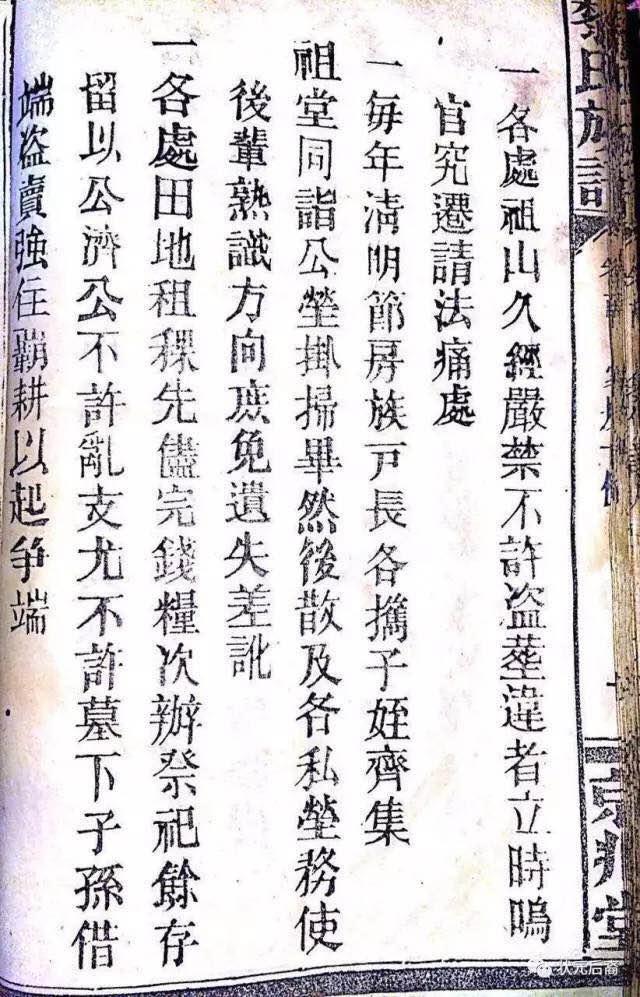 一各處祖山久經嚴禁不許盗塟違者立時鳴
官究遷請法痛處
一每年淸明節房族戸長各擕子姪齊集
祖堂同詣公塋掛掃畢然後散及各私塋務使
後輩熟識方向庶免遺失差訛
一各處田地租稞先儘完錢糧次辦祭祀餘存
留以公濟公不許亂支尤不許墓下子孫借
端盗賣強住覇耕以起爭端
氏族
堂
状元后裔